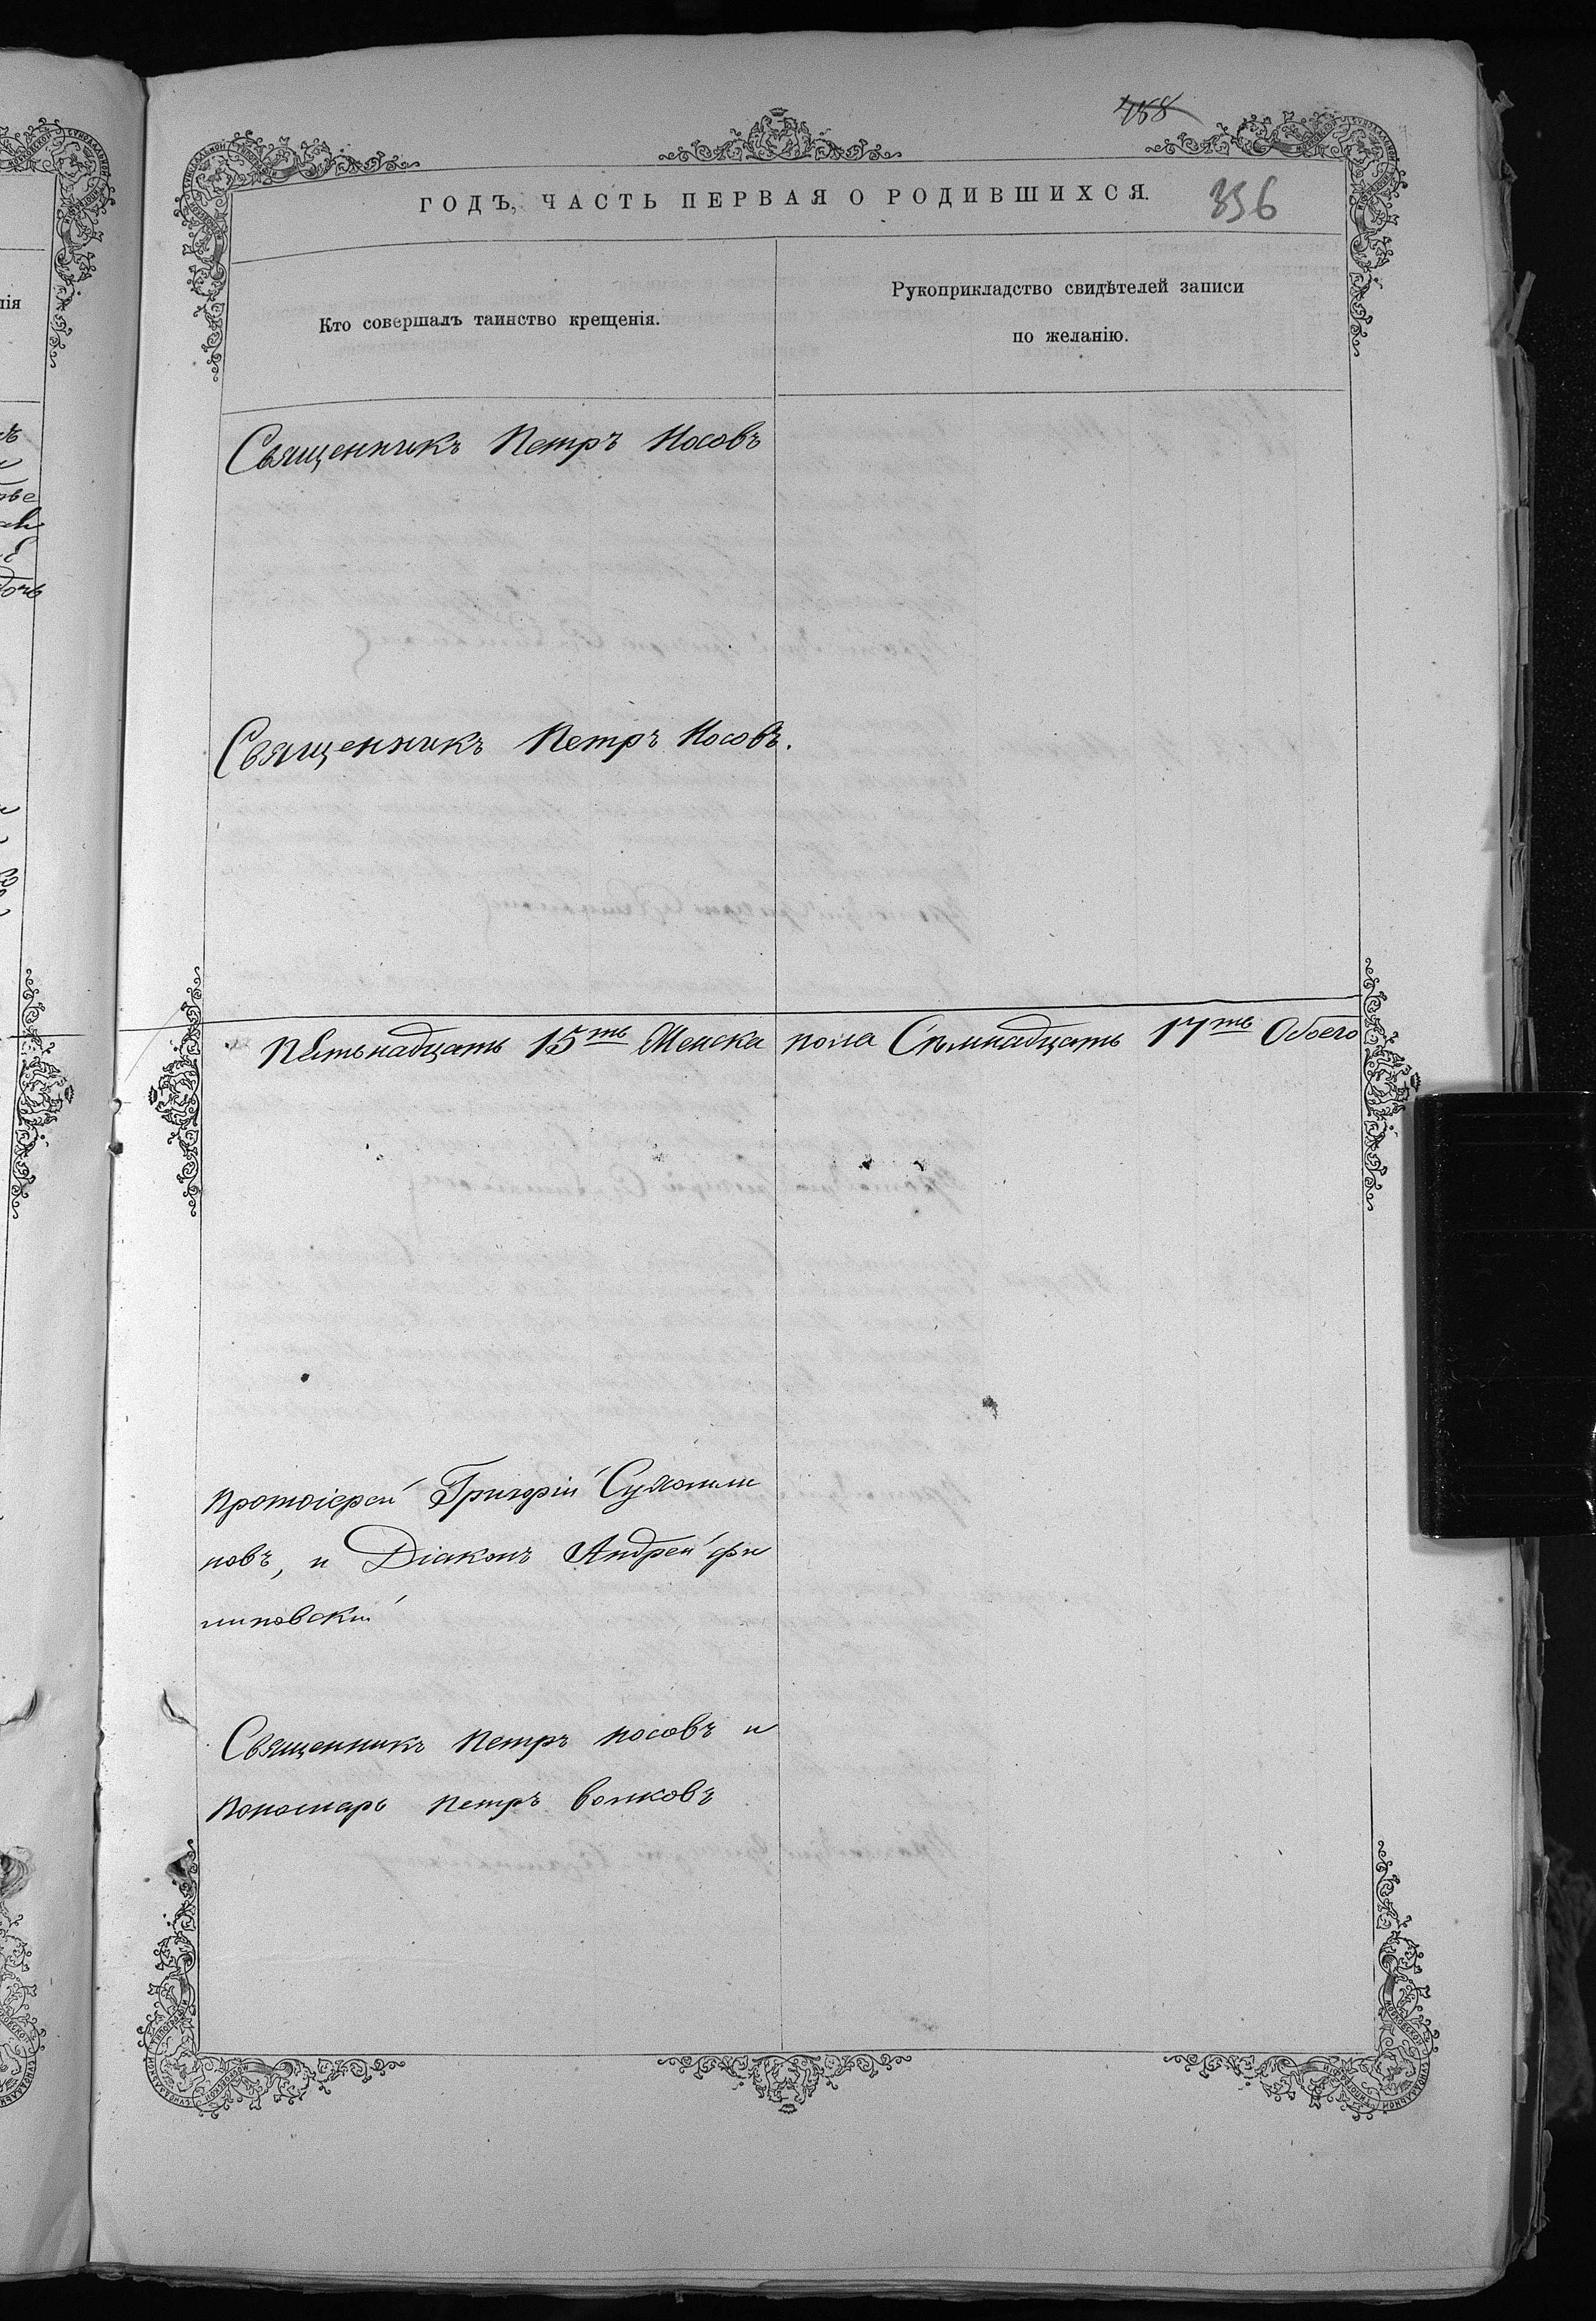 458
ГОДЪ, ЧАСТЬ ПЕРВАЯ О РОДИВШИХСЯ.
356
Кто совершалъ таинство крещенія.
Рукоприкладство свидѣтелей записи
по желанію.
Священникъ Петръ Носовъ
Священникъ Петръ Носовъ.
Пѣтьнадцать 15ть Женска пола Сѣмнадцать 17ть Обоего
Протоіерей Григорій
новъ, и Діаконъ Андрей Фи
липовскій
Священникъ Петръ Носовъ и
Пономарь Петръ Волковъ